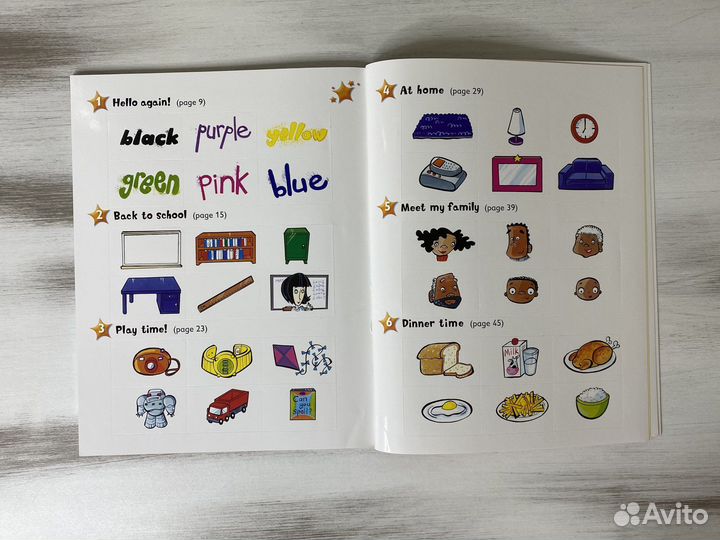 1 Hello again! (page 9)
black purple yellow
green pink blue
2 Back to school (page 15)
3 Play time! (page 23)
Can you spell?
4 At home (page 29)
5 Meet my family (page 39)
6 Dinner time (page 45)
Milk
Avito